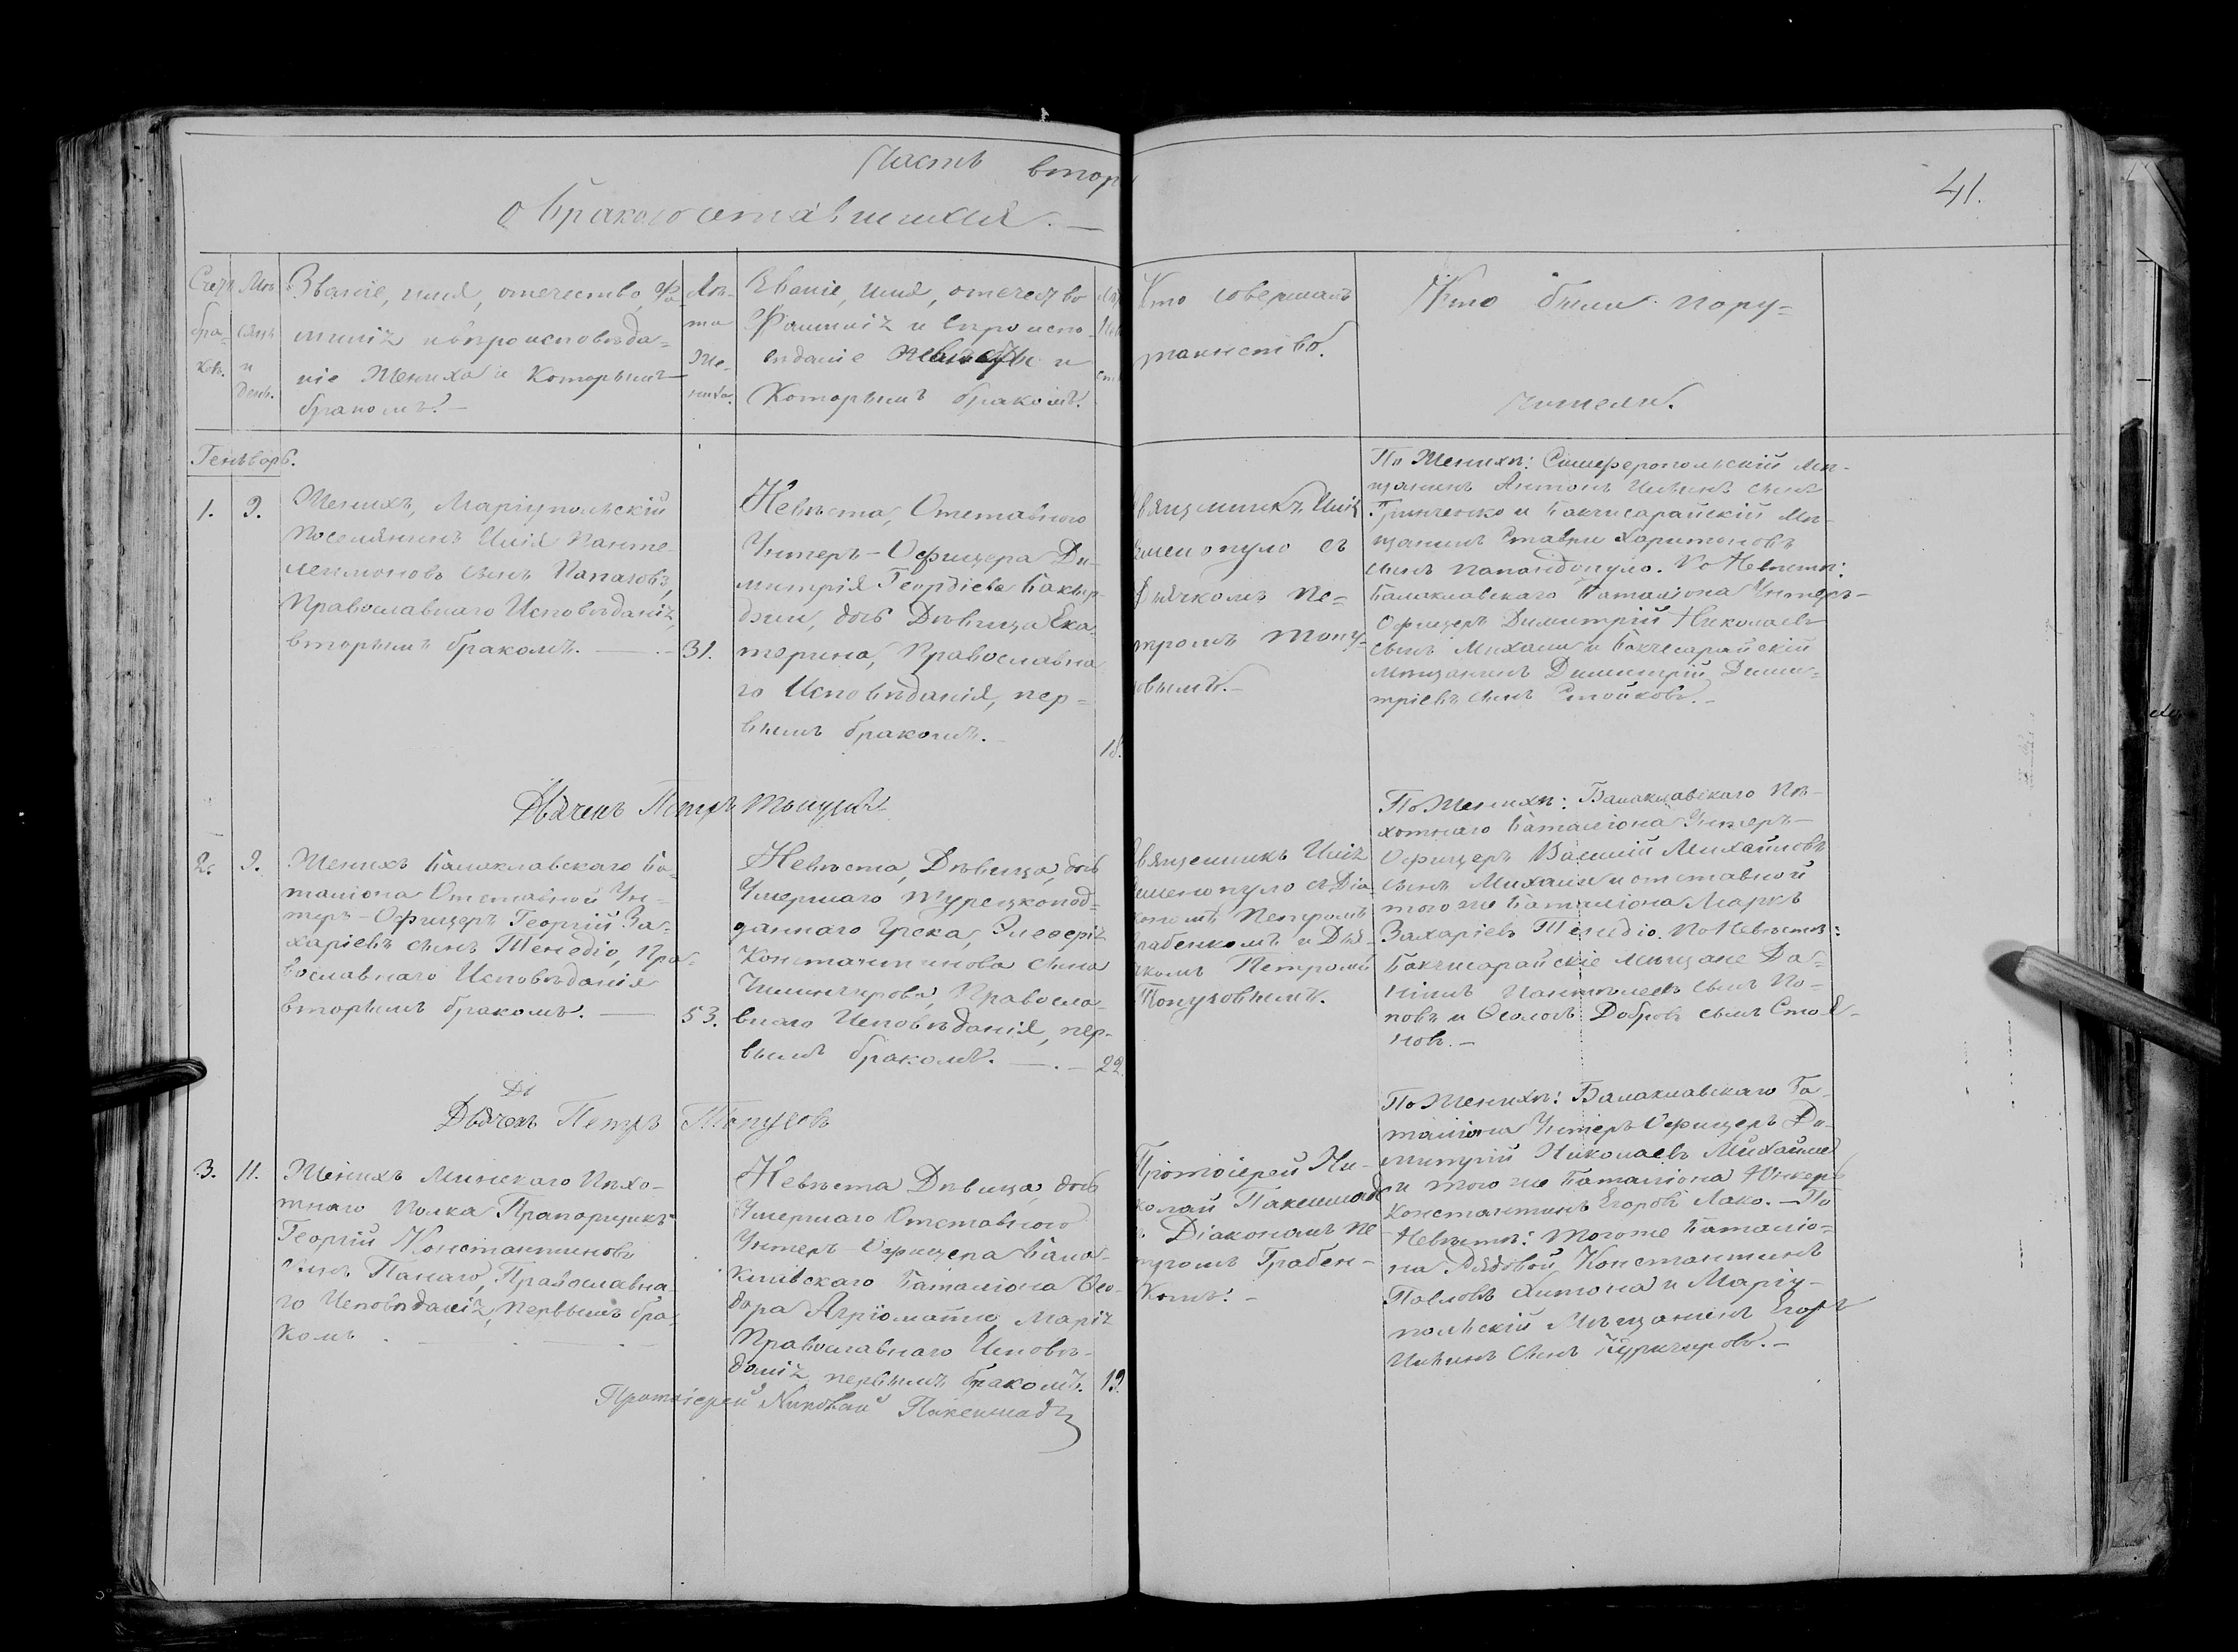 Часть втор
о бракосочетавшихся. —
41.
Счетъ
бра-
ковъ.
Мѣ-
сяцъ
и
день.
Званіе, имя, отечество, Фа-
милія и вѣроисповѣда-
ніе Жениха и Которымъ
бракомъ. —
Лѣ-
та
Же-
ниха.
Званіе, имя, отечество
Фамилія и вѣроиспо-
вѣданіе Невѣсты и
Которымъ бракомъ.
Кто совершалъ
таинство.
Кто были пору-
чители.
Генваръ.
1. 9.
Женихъ, Маріупольскій
поселянинъ Илія Панте-
леимоновъ сынъ Папазовъ,
Православнаго Исповѣданія,
вторымъ бракомъ. —
31.
Невѣста, Отставного
Унтеръ-Офицера Ди-
митрія Георгіева Бакыр-
джи, дочь Дѣвица Ека-
терина, Православна
го Исповѣданія, пер-
вымъ бракомъ.
18.
вященникъ Илія
семенопуло съ
Дьячкомъ Пе-
тромъ Топу-
зовымъ. —
По Женихѣ: Симферопольскій мѣ-
щанинъ Антонъ Ильинъ сынъ
Гринченко и Бакчисарайскій Мѣ-
щанинъ Ставри Харитоновъ
сынъ Папандопуло. По Невѣстѣ:
Балаклавскаго Баталіона Унтеръ-
Офицеръ Димитрій Николаевъ
сынъ Михали и Бакчесарайскій
мѣщанинъ Димитрій Дими-
тріевъ сынъ Стойковъ. —
Дьячекъ Петръ Топузовъ
2. 9.
Женихъ Балаклавскаго Ба-
таліона Отставной Ун-
теръ-Офицеръ Георгій За-
харіевъ сынъ Тенедіо, Пра-
вославнаго Исповѣданія
вторымъ бракомъ. —
53.
Невѣста, Дѣвица, дочь
Умершаго Турецкопод-
даннаго Грека, Элеверія
Константинова сына
Православ-
внаго Исповѣданія, пер-
вымъ бракомъ. — . —
22.
вященникъ Илія
еменопуло съ Діа-
кономъ Петромъ
рабенкомъ и Дья-
чкомъ Петромъ
Топузовымъ.
По Женихѣ: Балаклавскаго Пѣ-
хотнаго Баталіона Унтеръ-
Офицеръ Василій Михайловъ
сынъ Михали и отставной
того же Баталіона Маркъ
Захаріевъ Тенедіо. По Невѣстѣ:
Бакчисарайскіе мѣщане Да-
ніилъ Пантелеевъ сынъ По-
повъ и Добровъ сынъ Стоя-
новъ. —
Дь
Дьячекъ Петръ Топузовъ
3. 11.
Женихъ Минскаго Пѣхо-
тнаго Полка Прапорщикъ
Георгій Константиновъ
сынъ Панаго, Православна-
го Исповѣданія, первымъ бра-
комъ
Невѣста Дѣвица, дочь
Умершаго Отставного
Унтеръ-Офицера Бала-
клавскаго Баталіона Ѳео-
дора Агріоматіо, Марія
Православнаго Исповѣ-
данія, первымъ бракомъ.
19.
Протоіерей Ни-
колай Пакешмадъ
Діакономъ Пе
тромъ Грабен-
комъ. —
По Женихѣ: Балаклавскаго Ба-
таліона Унтеръ Офицеръ Ди-
митрій Николаевъ Михайли
и того же Баталіона Юнкеръ
Константинъ Егоровъ Лако. — По
Невѣстѣ: того же Баталіо-
на Рядовой Константинъ
Павловъ Хитона и Маріу-
польскій Мѣщанинъ Егоръ
Ильинъ сынъ Куркчировъ. —
Протоіерей Николай Пакешмадъ